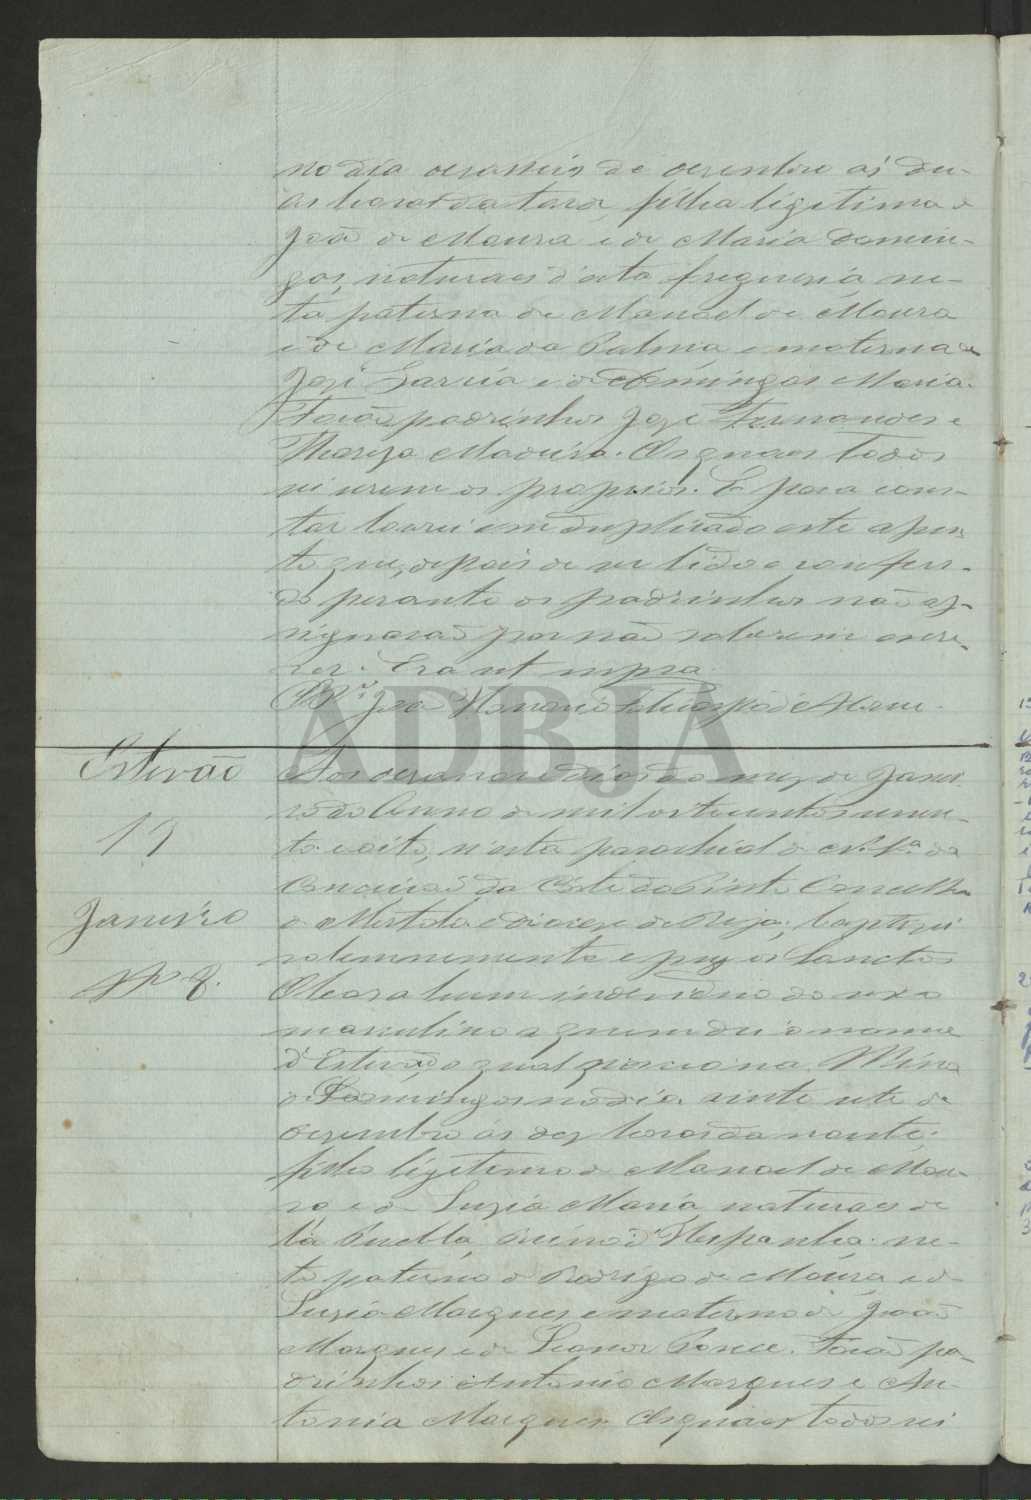 no dia desasseis de desembro ás du-
as horas da tarde, filha legitima de
João de Moura e de Maria Domin-
gas, naturaes d'esta freguesia, ne-
ta paterna de Manoel de Moura
e de Maria da Palma e materna de
José Garcia e de Domingas Maria.
Forão padrinhos José Fernandes e
Thereza Madeira. Os quaes todos
sei serem os proprios. E para cons-
tar lavrei em duplicado este assen-
to que, depois de ser lido e conferi-
do perante os padrinhos não as-
signarão por não saberem escre-
ver. Era ut supra
João
ADBJA
Estevão
Aos desanove dias do mez de Janei-
ro do Anno de mil oitocentos secen-
ta e oito, n'esta parochial de N. Sr.ª da
Conceição da Córte do Pinto Concelho
de Mertola e diocese de Beja; baptisei
solemnemente e puz os Sanctos
Oleos a hum individuo do sexo
masculino a quem dei o nome
d'Estevão o qual nasceo na Mina
de S. Domingos no dia vinte sete de
desembro ás dez horas da noute;
filho legitimo de Manoel de Mou-
ra e de Luzia Maria, naturaes de
la Puebla, Reino d'Hespanha: ne-
to paterno de Rodrigo de Moura, e de
Luzia Marques, e materno de João
Marques e de Leonor Ponce. Forão pa-
drinhos Antonio Marques e An-
tonia Marques. Os quaes todos sei
Janeiro